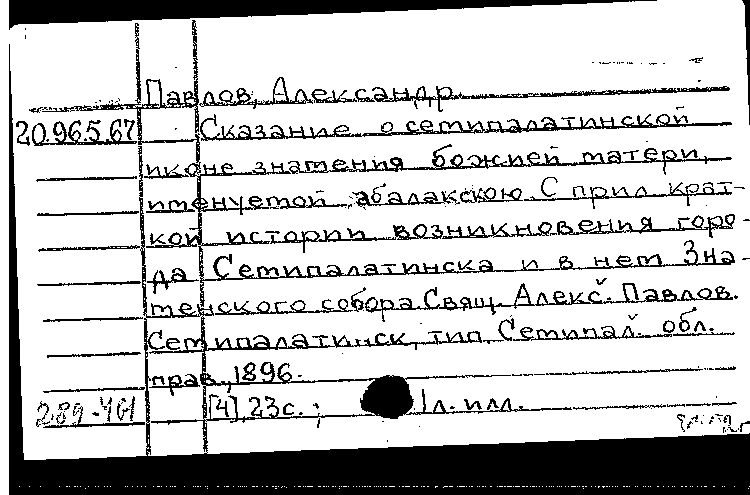 Павлов, Александр.
20.965.67 Сказание о семипалатинской
иконе знамения божией матери,
именуемой абалакскою. С прил. крат-
кой истории возникновения горо-
да Семипалатинска и в нем Зна-
менского собора Свящ. Алекс. Павлов.
Семипалатинск, тип. Семипал. обл.
прав., 1896.
289-461 [4], 23 с.; 1 л. илл.